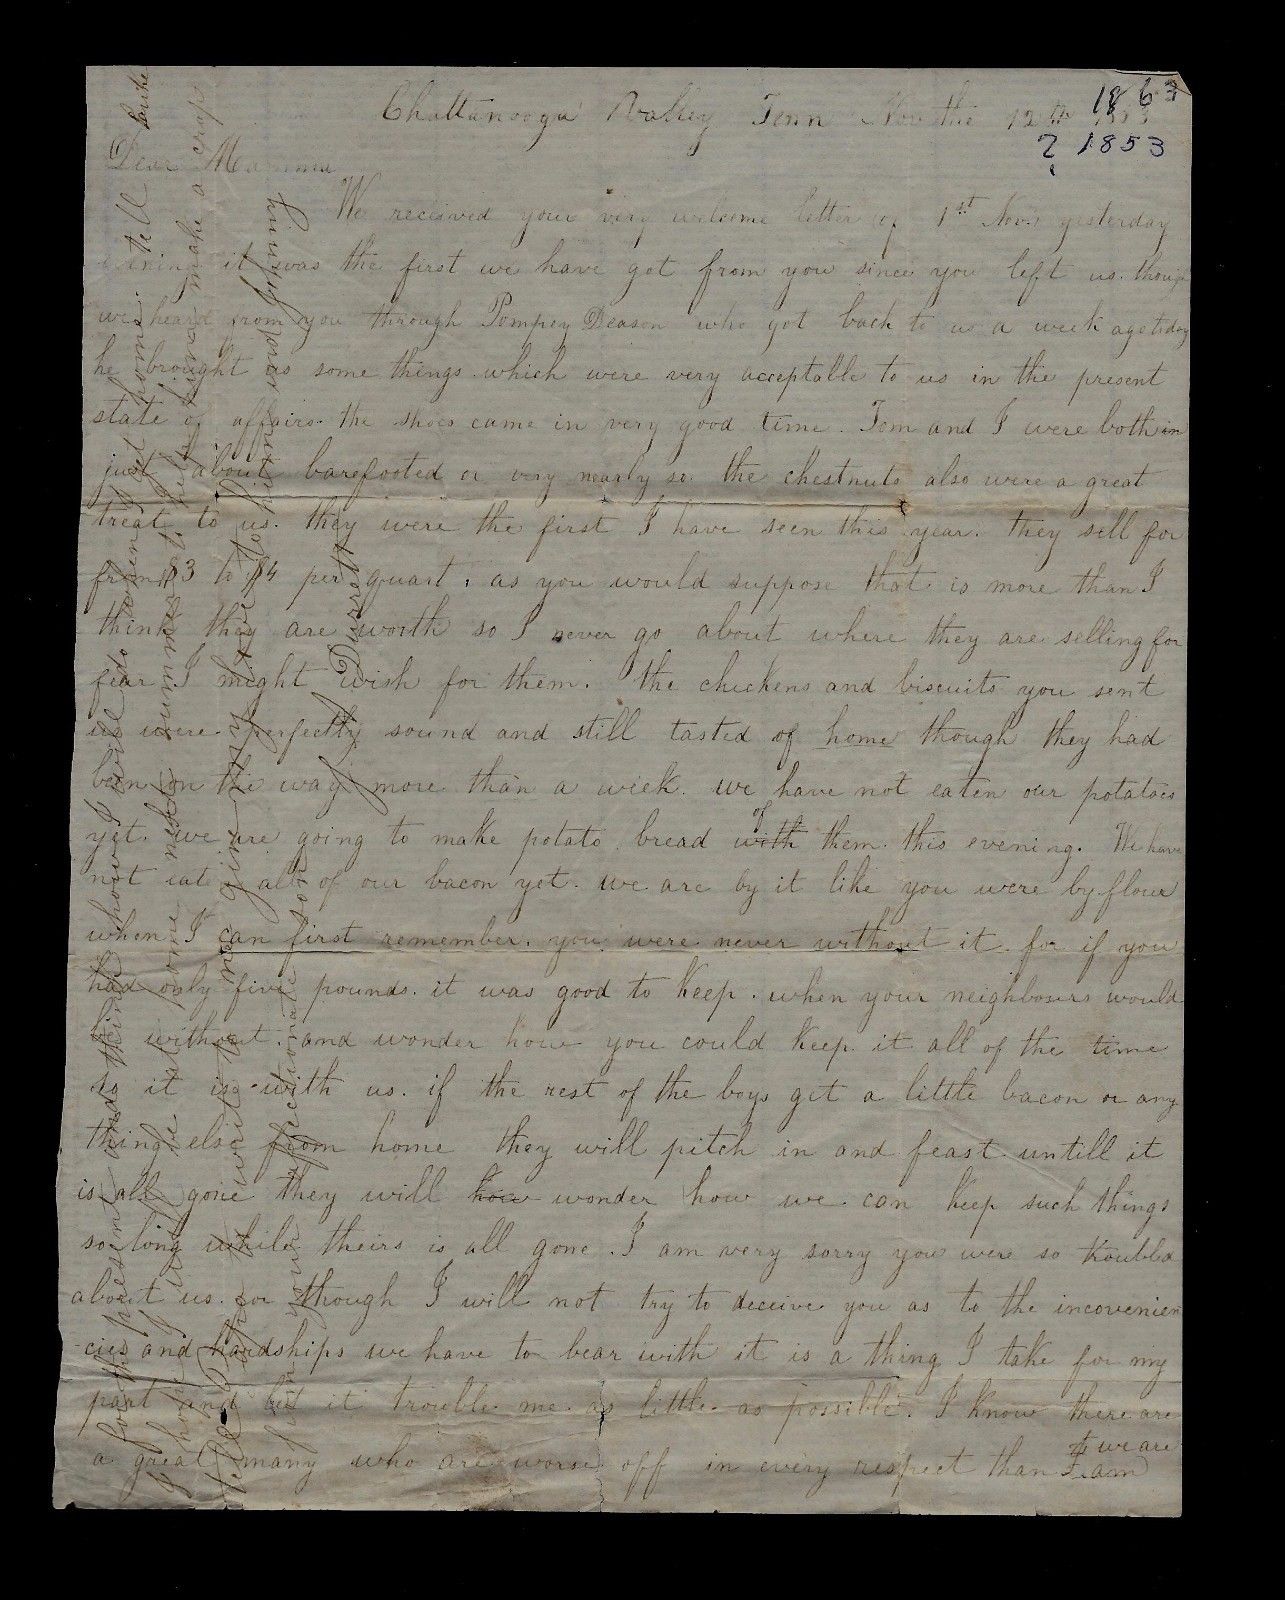 Chattanooga Valley Tenn Nov the 12th
1863
? 1853
Dear Mamma
We received your very welcome letter of 1st Nov. yesterday
evening it was the first we have got from you since you left us. though
we heard from you through Pompey Deason who got back to us a week ago today
he brought us some things which were very acceptable to us in the present
state of affairs. the shoes came in very good time. Tom and I were both in
just about barefooted or very nearly so. the chestnuts also were a great
treat to us. they were the first I have seen this year. they sell for
from $3 to $4 per quart. as you would suppose that is more than I
think they are worth so I never go about where they are selling for
fear I might wish for them. the chickens and biscuits you sent
us were perfectly sound and still tasted of home though they had
been on the way more than a week. we have not eaten our potatoes
yet. we are going to make potato bread with of them this evening. We have
not eate all of our bacon yet. we are by it like you were by flour
when I can first remember. you were never without it. for if you
had only five pounds. it was good to keep. when your neighbours would
be without. and wonder how you could keep it all of the time
so it is with us. if the rest of the boys get a little bacon or any
thing else from home they will pitch in and feast untill it
is all gone they will how wonder how we can keep such things
so long while theirs is all gone. I am very sorry you were so troubled
about us. for though I will not try to deceive you as to the incovenien
cies and hardships we have to bear with it is a thing I take for my
part and let it trouble me as little as possible. I know there are
a great many who are worse off in every respect than I am
we are
for the present and think how I will do when I get home. tell
I hope I will be at home next summer to help him make a crop
tell to write to me give my love to him and Johnny
from your affectionate son J Durrett